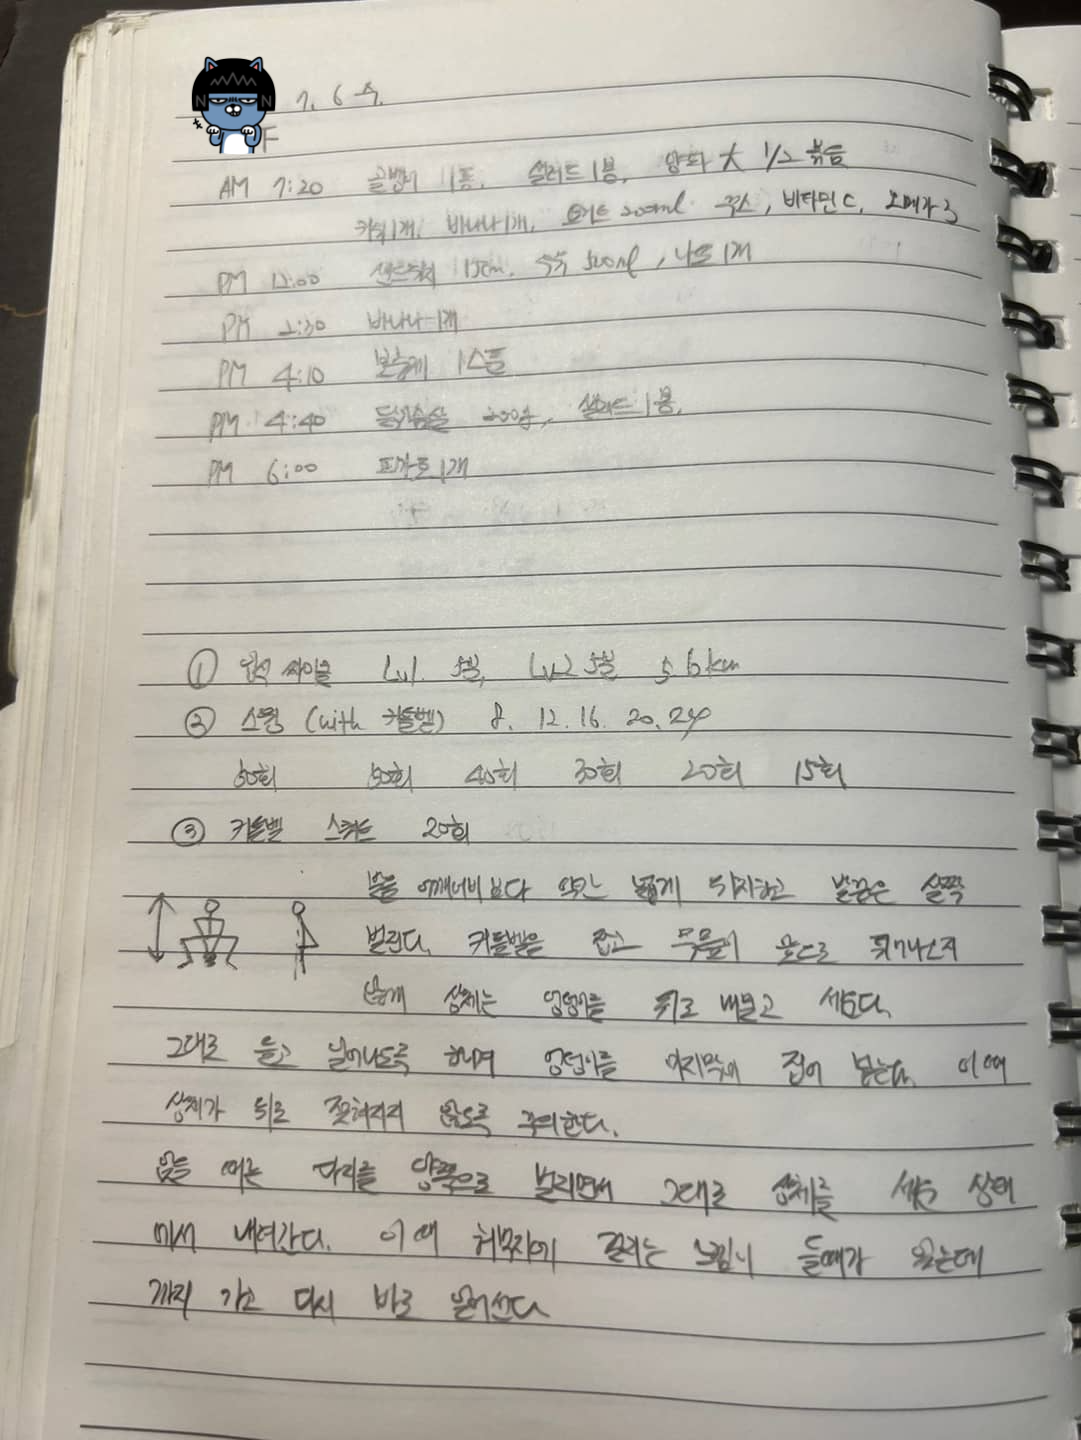 7. 6 수.
F
AM 7:20 골뱅이 1통, 샐러드 1봉, 양파 大 1/2 볶음
키위 1개, 바나나 1개, 요거트 200ml 주스, 비타민 C, 오메가 3
PM 12:00 샌드위치 15cm, 우유 500ml, 나또 1개
PM 2:30 바나나 1개
PM 4:10 보충제 1스쿱
PM 4:40 닭가슴살 200g, 샐러드 1봉.
PM 6:00 피자호 1개
① 싸이클 Lv1 5분, Lv2 5분 5.6km
② 스윙 (with 커틀벨) 8. 12. 16. 20. 24
50회 50회 40회 30회 20회 15회
③ 커틀벨 스쿼트 20회
발을 어깨너비 보다 약간 넓게 위치하고 발끝은 살짝
벌린다. 커틀벨을 잡고 무릎이 앞으로 튀어나오지
않게 상체는 엉덩이를 뒤로 빼고 세운다.
그대로 들고 일어나도록 하며 엉덩이를 마지막에 집어 넣는다. 이 때
상체가 뒤로 젖혀지지 않도록 주의한다.
앉을 때는 다리를 양쪽으로 벌리면서 그대로 상체를 세운 상태
에서 내려간다. 이 때 허벅지에 걸리는 느낌이 들때가 있는데
까지 가고 다시 바로 일어선다